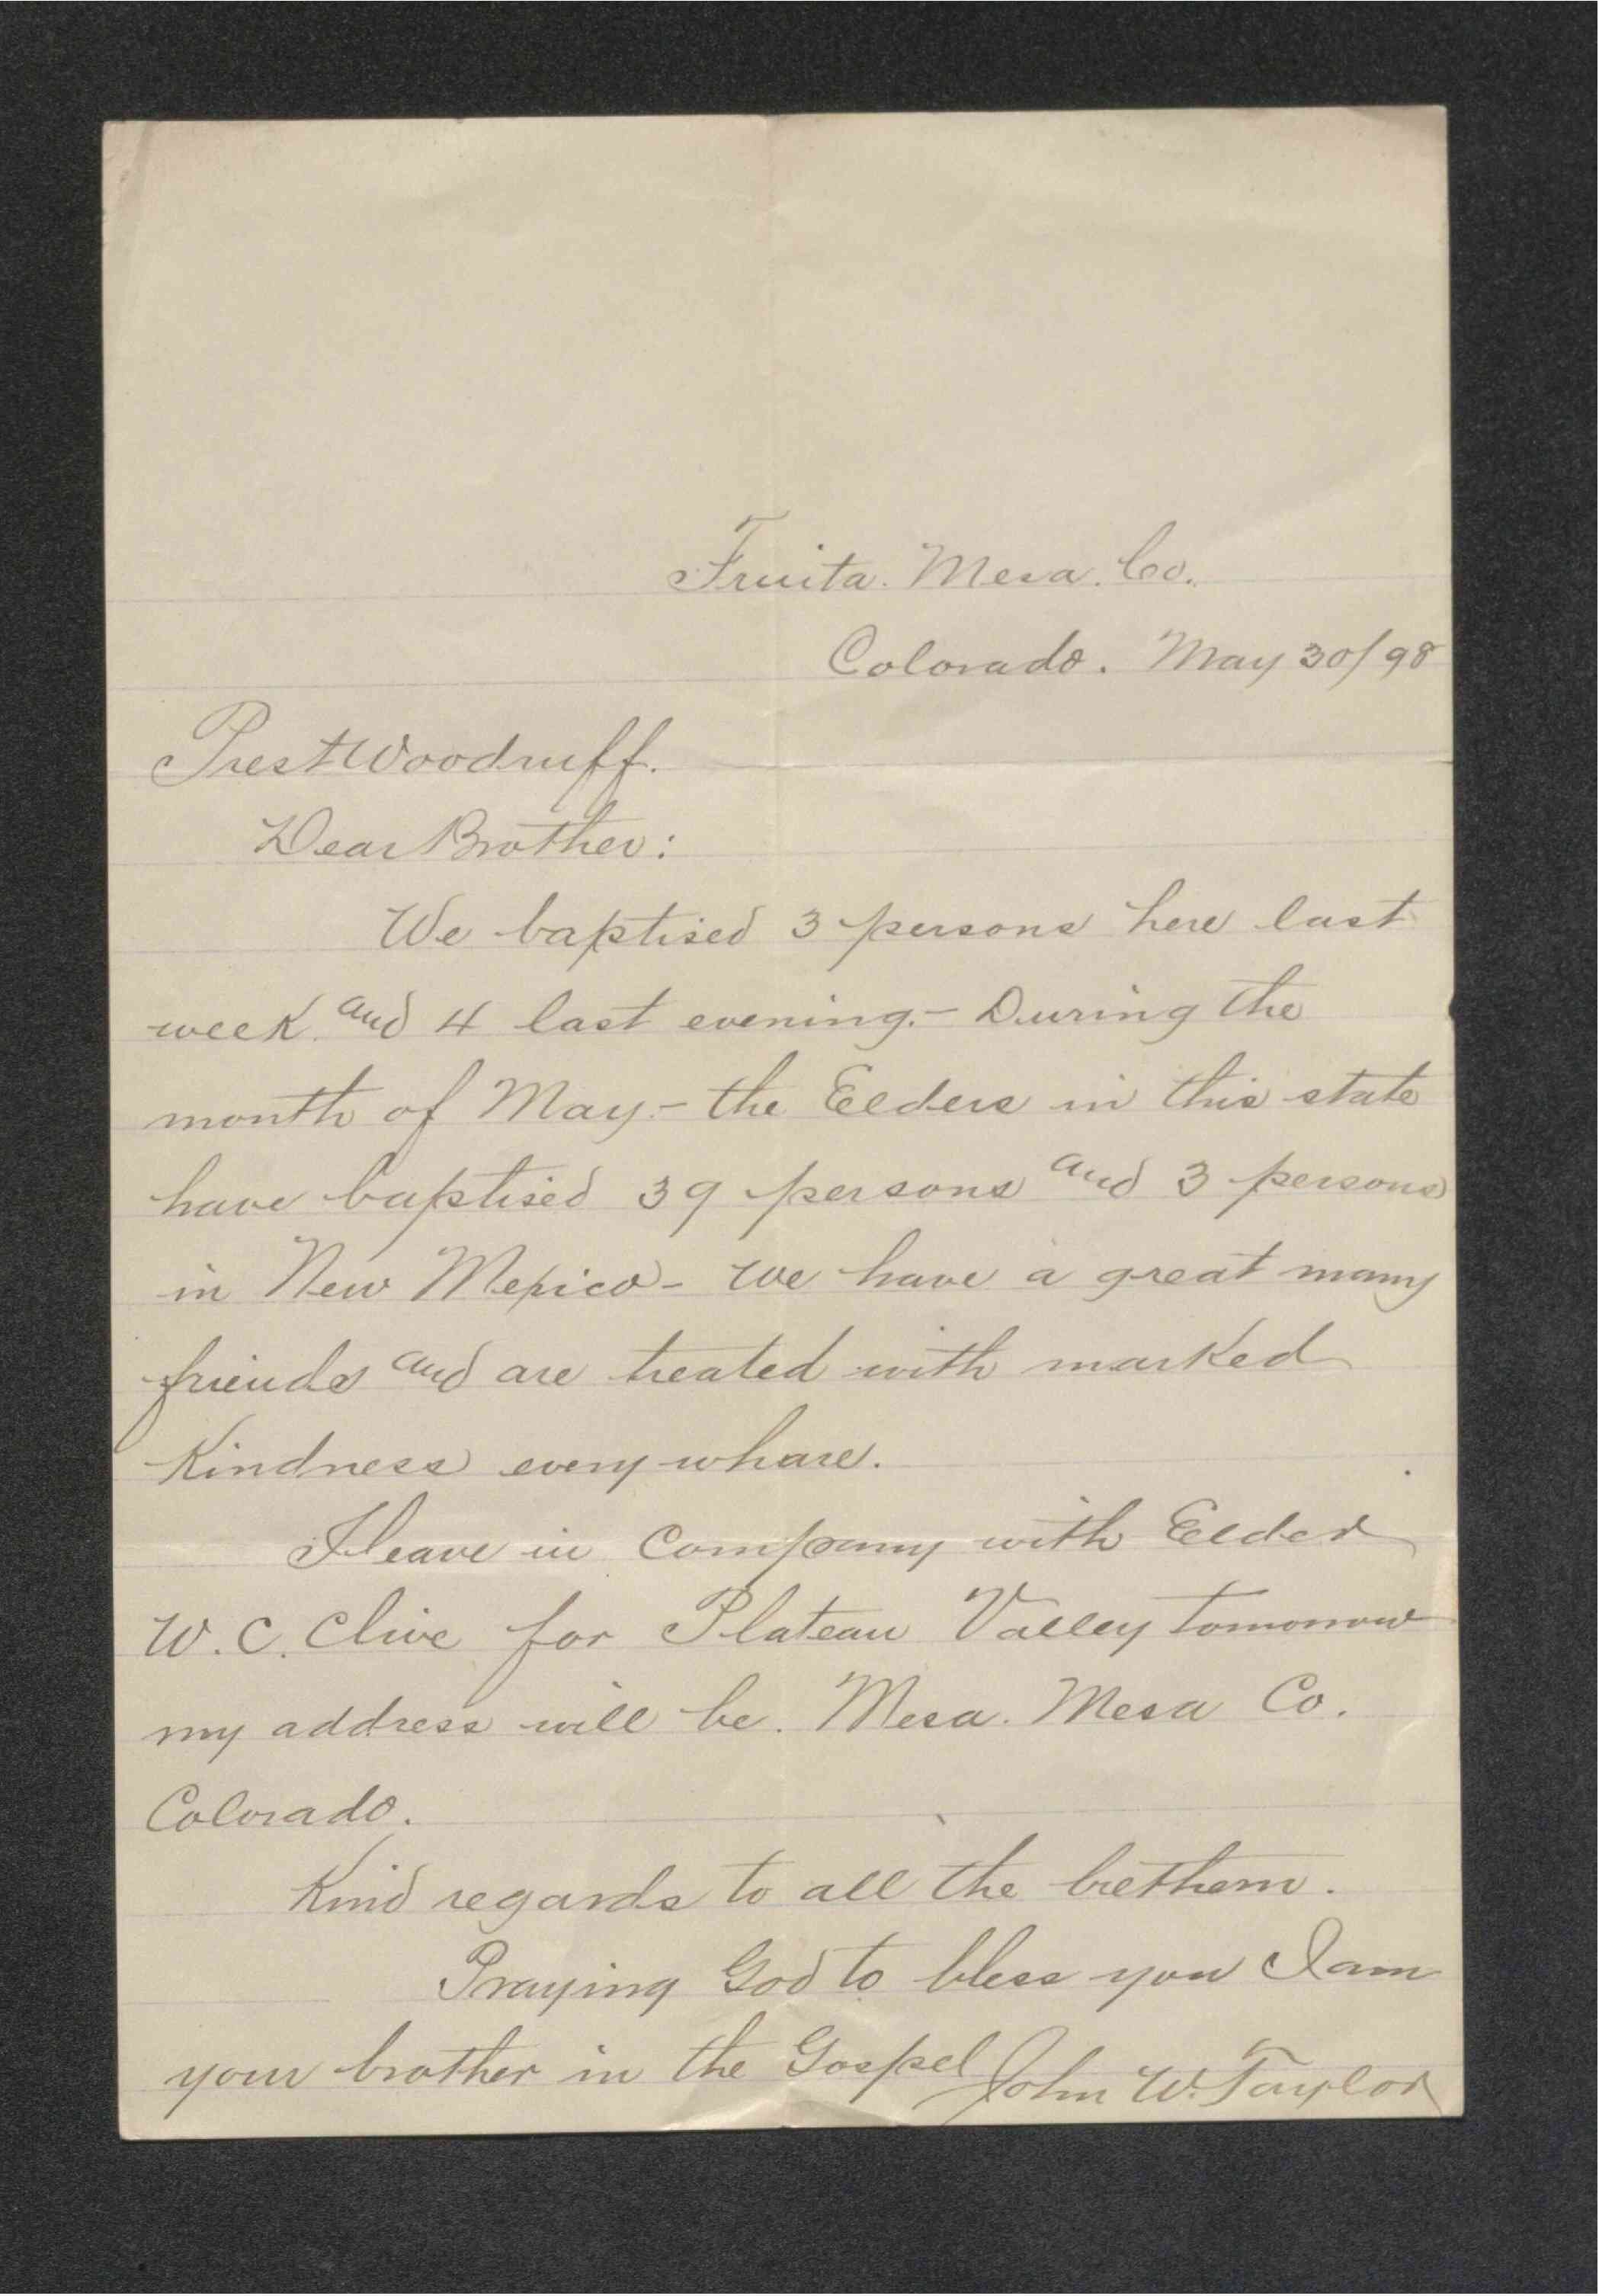 Fruita. Mesa. Co.
Colorado. May 30/98
Prest Woodruff.
Dear Brother:
We baptised 3 persons here last
week and 4 last evening.- During the
month of May.- the Elders in this state
have baptised 39 persons and 3 persons
in New Mexico- We have a great many
friends and are treated with marked
Kindness every whare.
I leave in Company with Elder
W. C. Clive for Plateau Valley tomorrow
my address will be. Mesa. Mesa Co.
Colorado.
Kind regards to all the brethern.
Praying God to bless you I am
your brother in the Gospel John W. Taylor